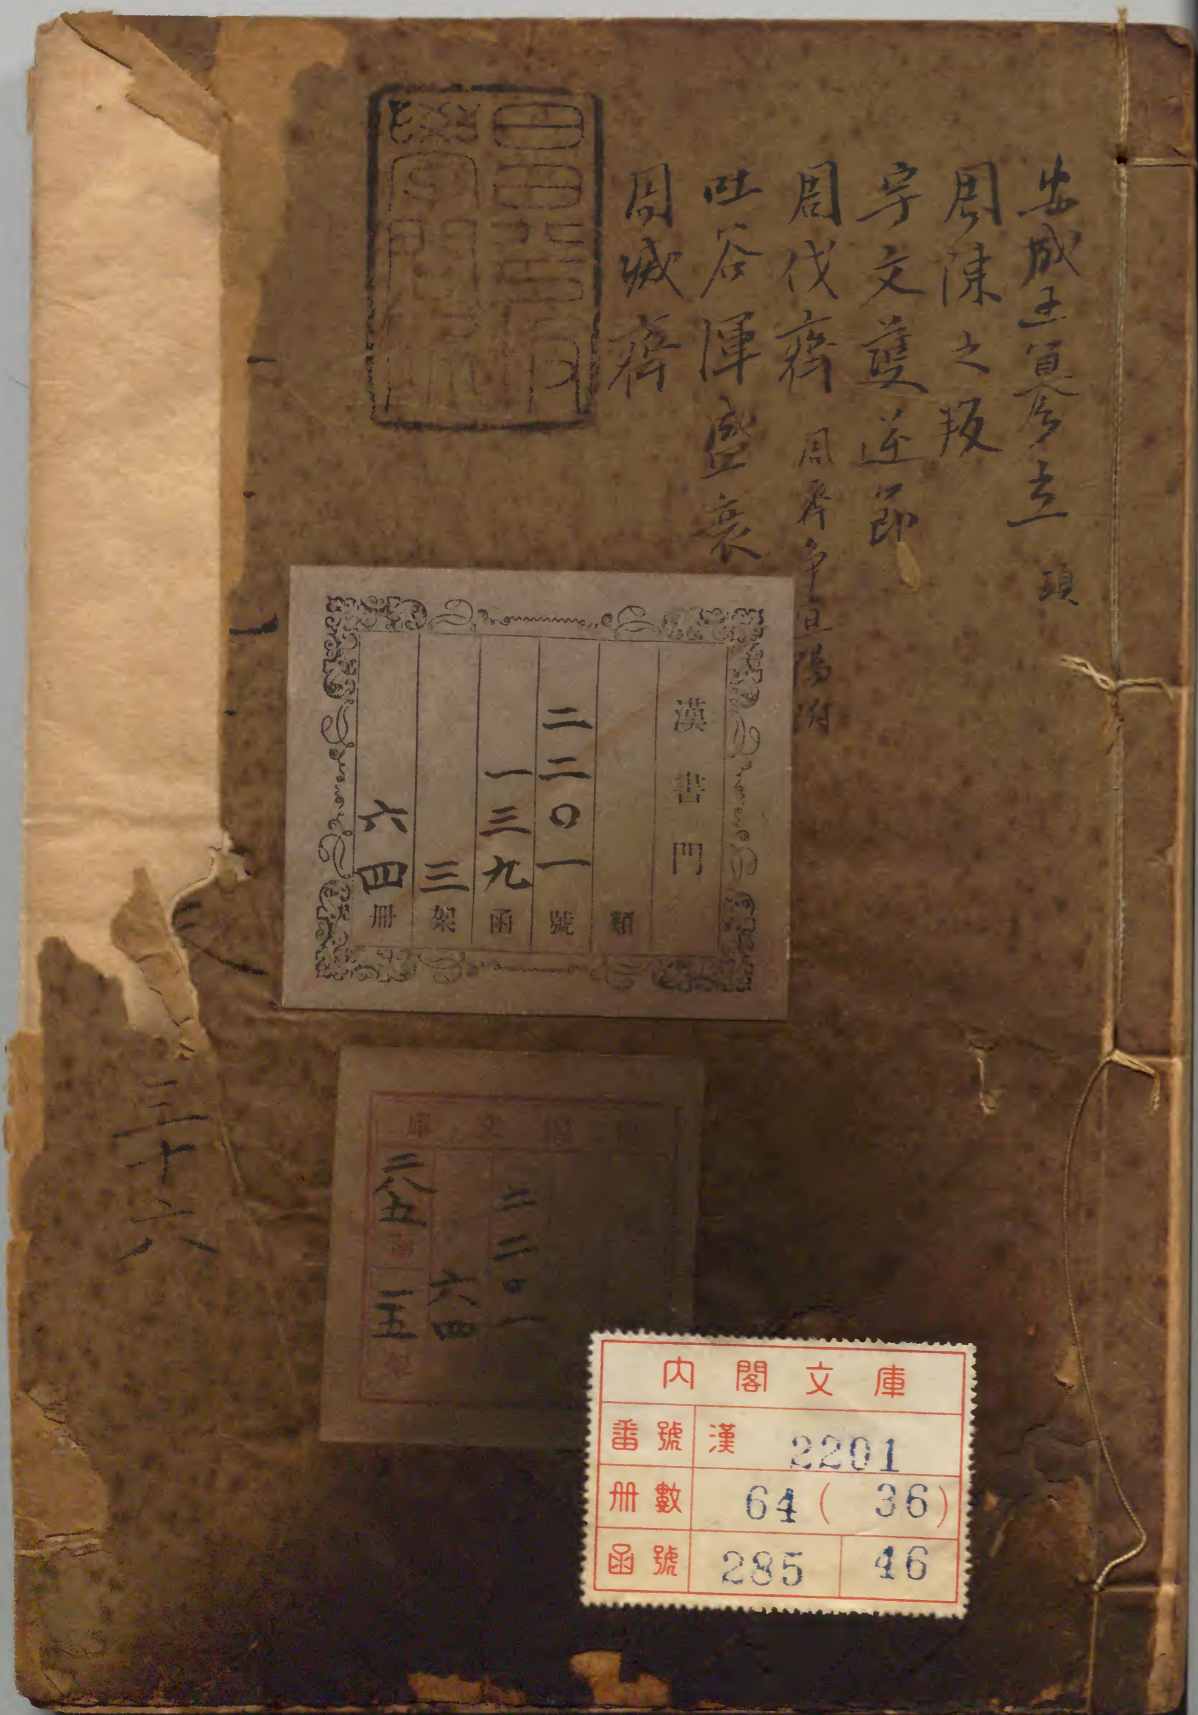 安成王篡立 頊
周陳之叛
宇文護逆節
周伐齊 周齊爭宜陽附
吐谷渾盛衰
周滅齊
昌平坂
學問所
漢書門
類
二二〇一號
一三九函
三架
六四冊
三十六
文庫
二二〇一
六四
二八五函
一五架
內閣文庫
番號 漢 2201
冊數 64 (36)
函號 285 46